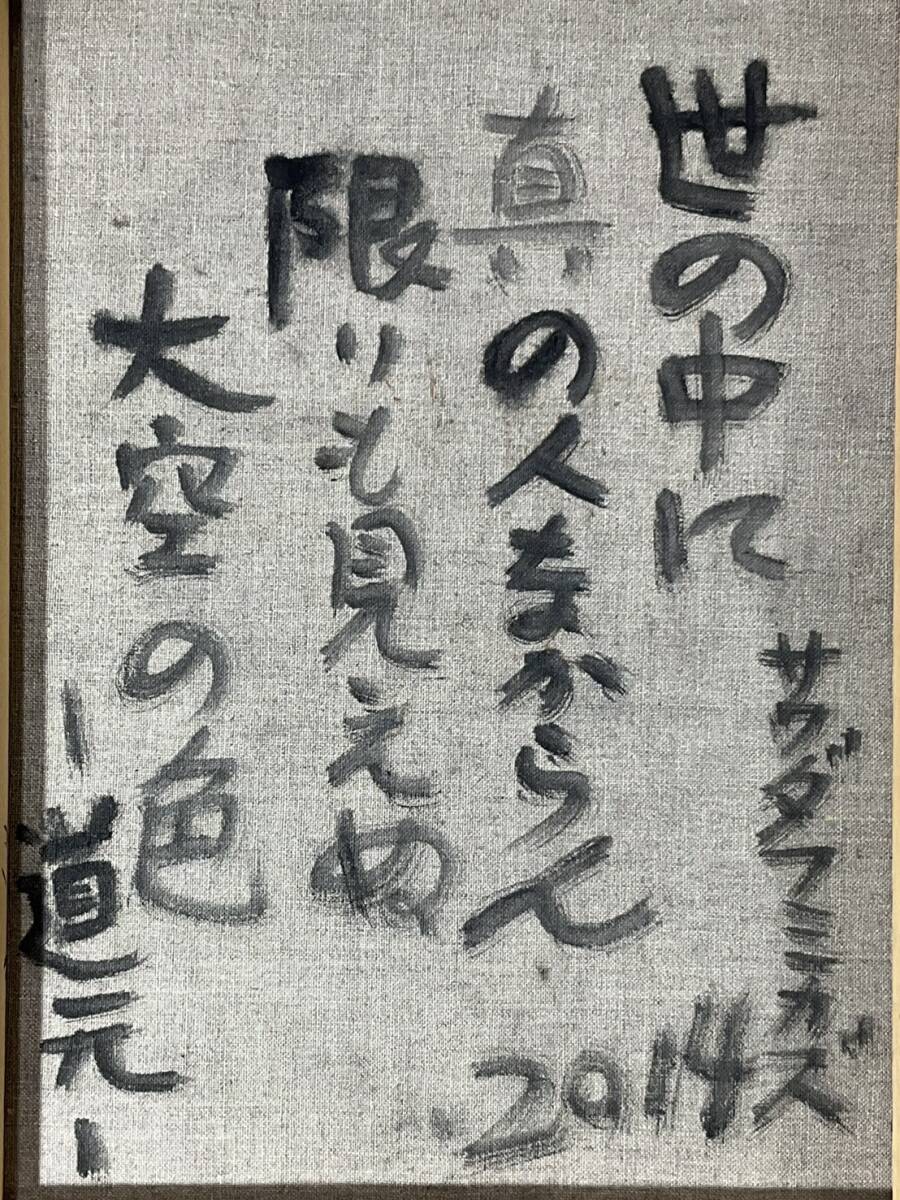 世の中に
真の人なからん
限りも見えぬ
大空の色
ー道元ー
サワダフミカズ
2014